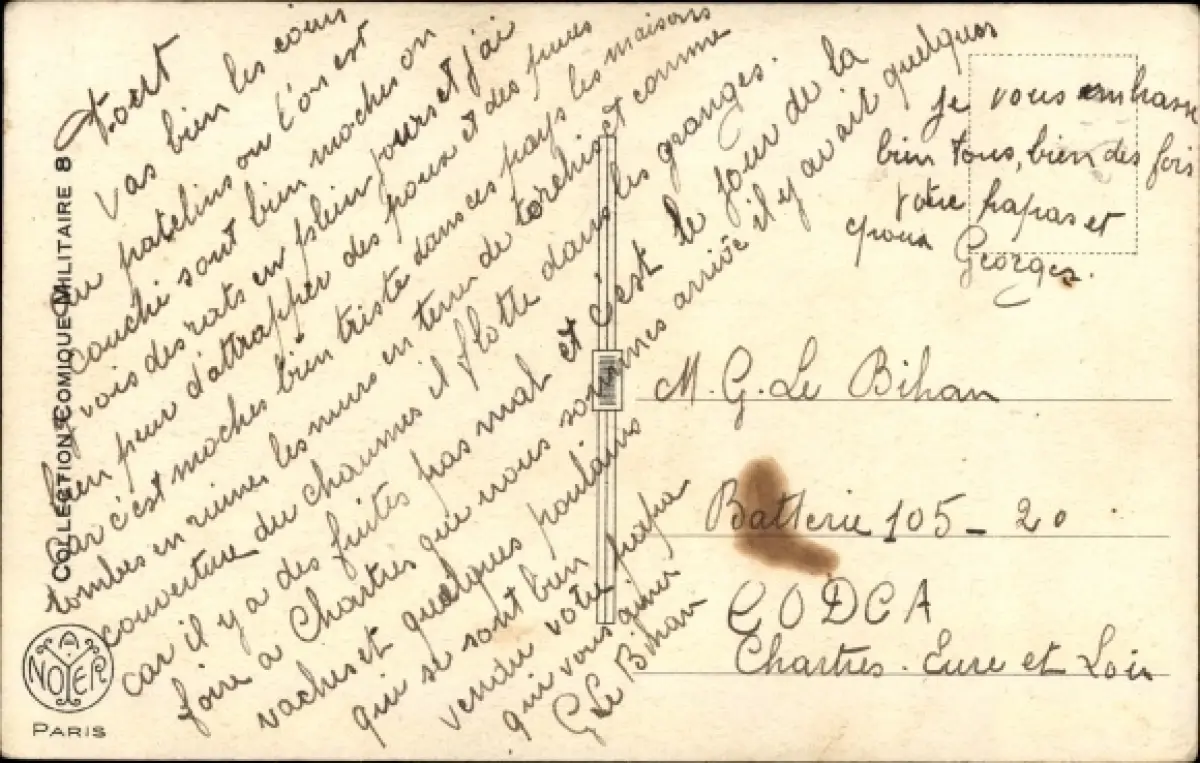 tout
vas bien les coins
ou patelins ou l'on est
couché sont bien moches on
y vois des rats en plein jours et j'ai
bien peur d'attrapper des poux et des puces
car c'est moches bien triste dans ces pays les maisons
tombes en ruines les murs en terre de torchis et comme
couverture du chaumes il flotte dans les granges.
car il y a des fuites pas mal et c'est le jour de la
foire a Chartres que nous sommes arrivé il y avait quelques
vaches et quelques poulains
qui se sont bien
vendu votre papa
qui vous aime
G Le Bihan
je vous embrasse
bien tous, bien des fois
votre papas et
époux
Georges.
M. G. Le Bihan
Batterie 105 - 20
CODCA
Chartres. Eure et Loir
COLLECTION COMIQUE MILITAIRE 8
NOYER
PARIS